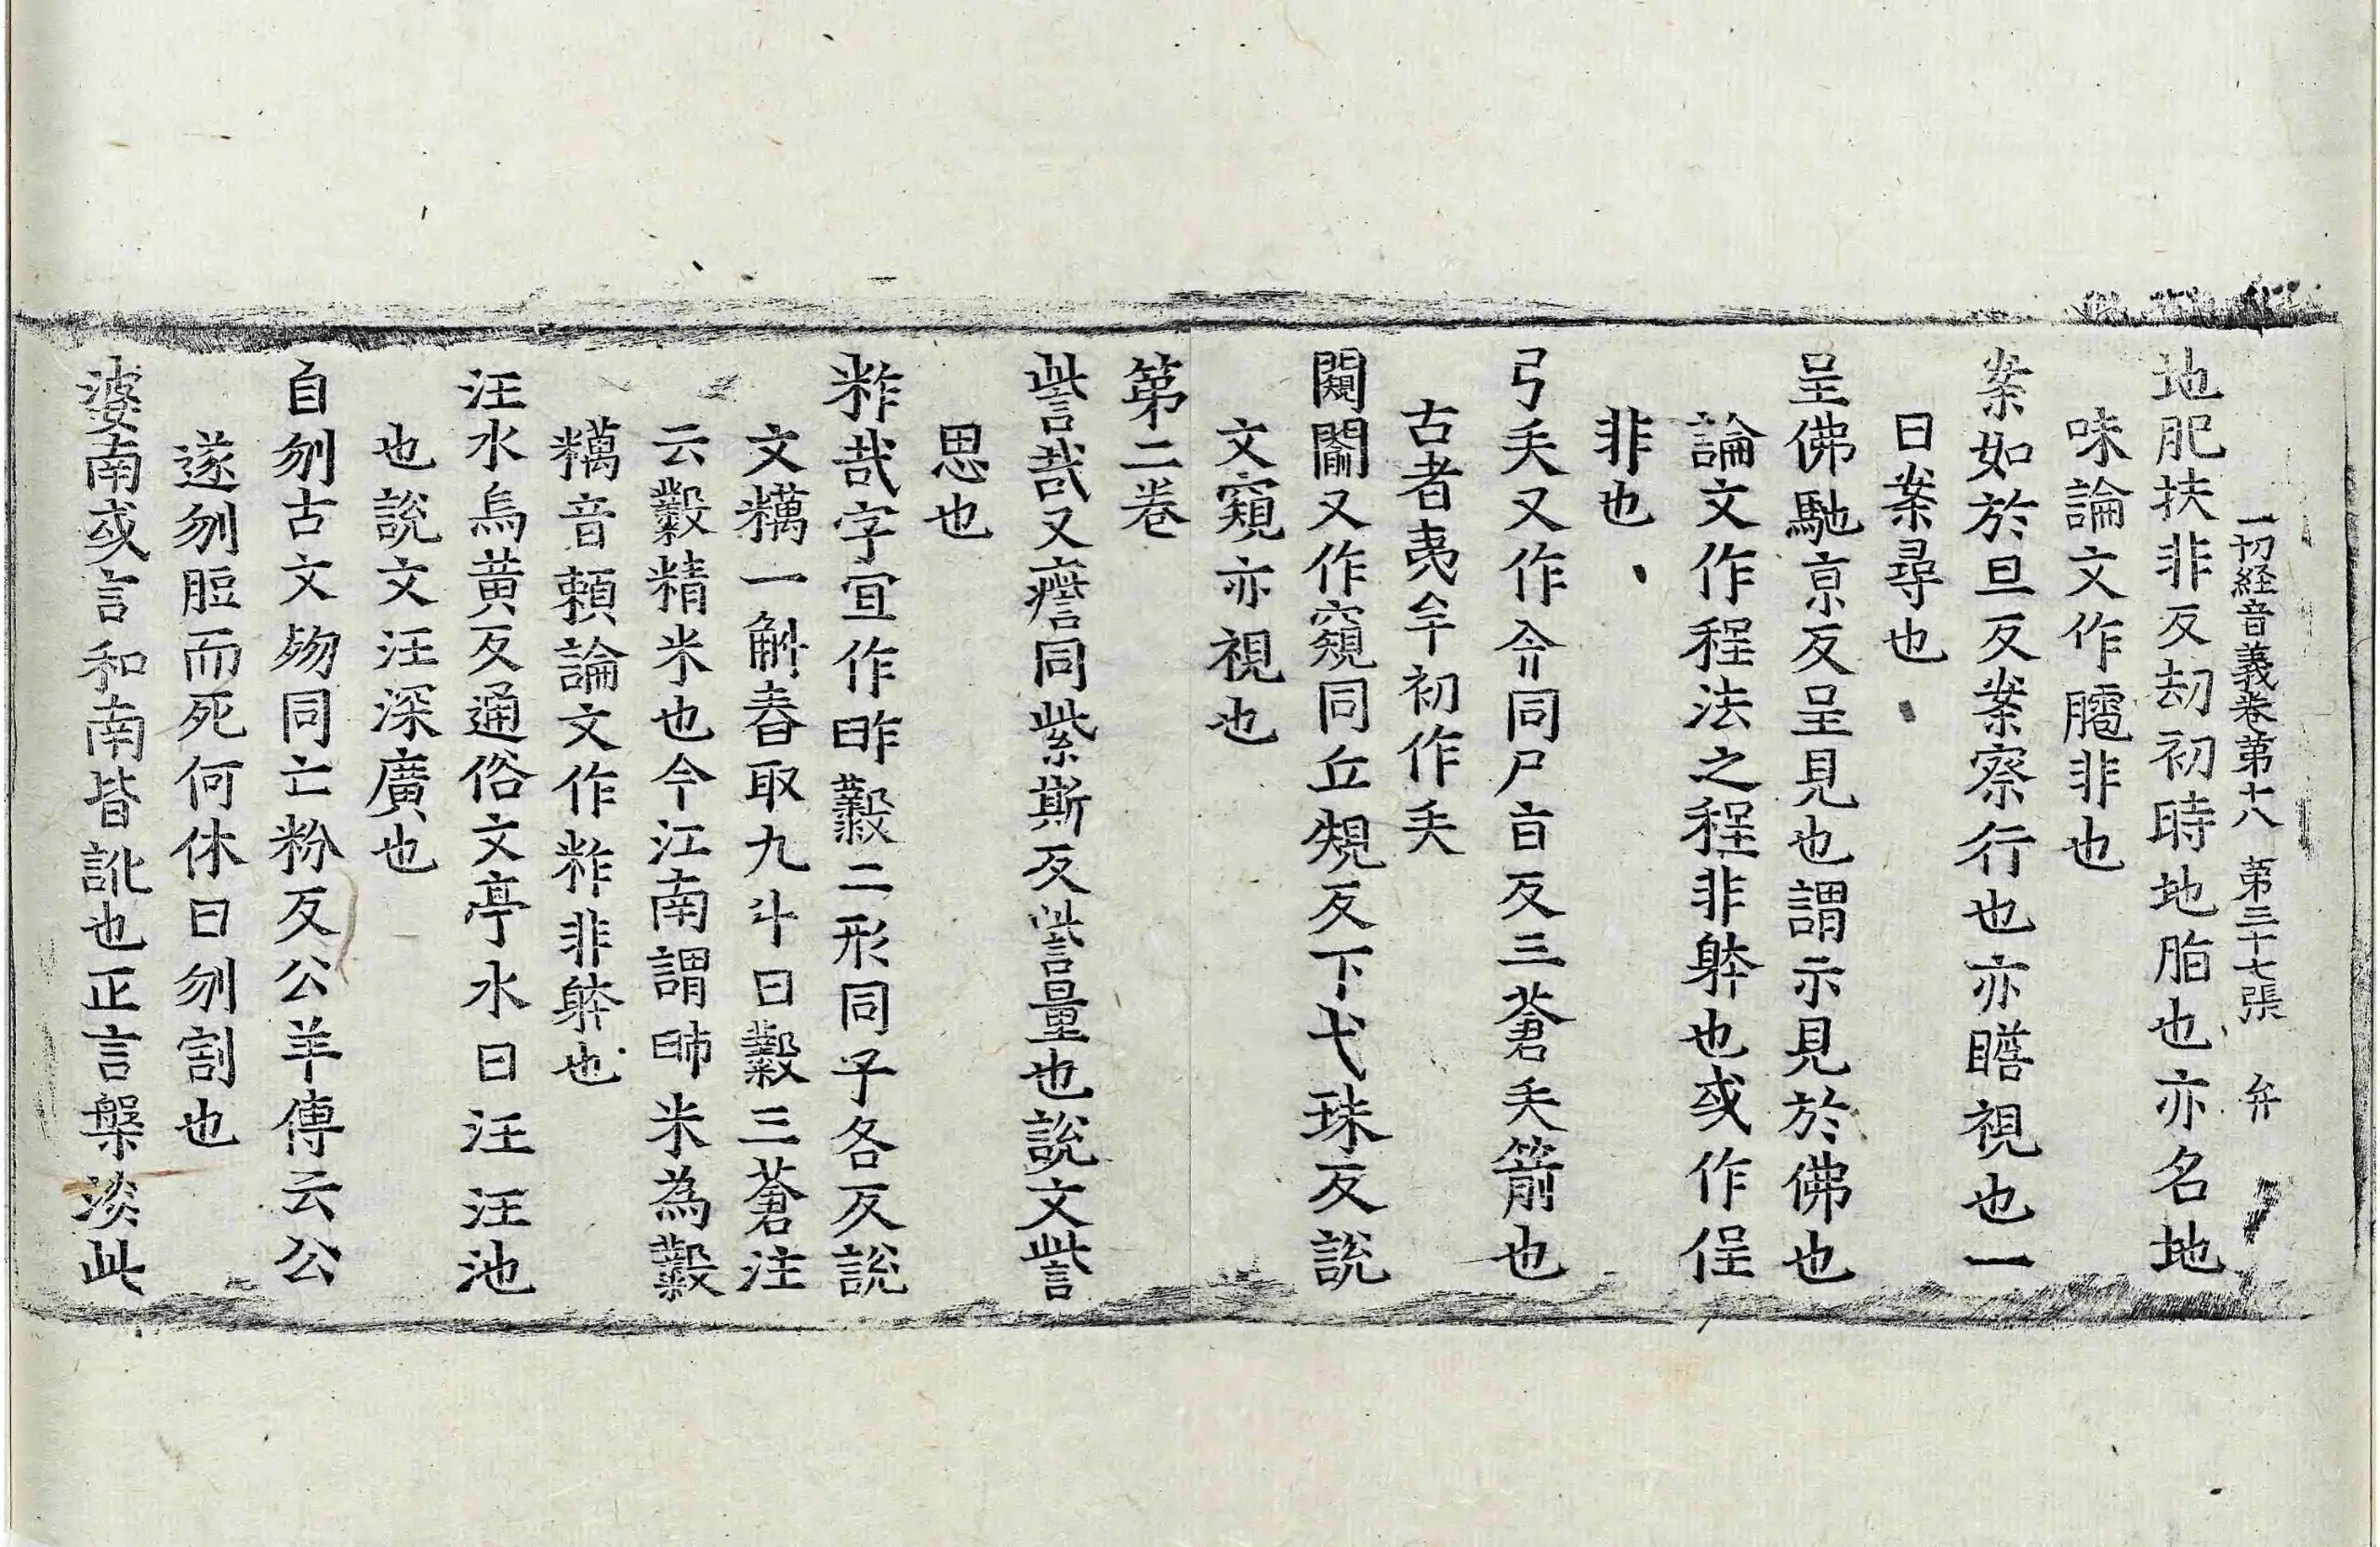 一切経音義卷第十八 第三十七張 弁
地肥扶非反劫初時地脂也亦名地
味論文作䐗非也
案如於旦反案察行也亦瞻視也一
曰案尋也
呈佛馳京反呈見也謂示見於佛也
論文作程法之程非躰也或作侱
非也
弓矢又作𠓥同尸旨反三蒼矢箭也
古者夷牟初作矢
闚闟又作窺同丘規反下弋珠反說
文窺亦視也
第二卷
訾哉又𤺒同紫斯反訾量也說文訾
思也
粰哉字宜作㫺䊪二形同子各反說
文䊪一斛舂取九斗曰䊪三蒼注
云䊪精米也今江南謂㫺米為䊪
䊪音賴論文作粰非躰也
汪水烏黃反通俗文亭水曰汪汪池
也說文汪深廣也
自刎古文歾同亡粉反公羊傳云公
遂刎脰而死何休曰刎割也
婆南或言和南皆訛也正言槃淡此